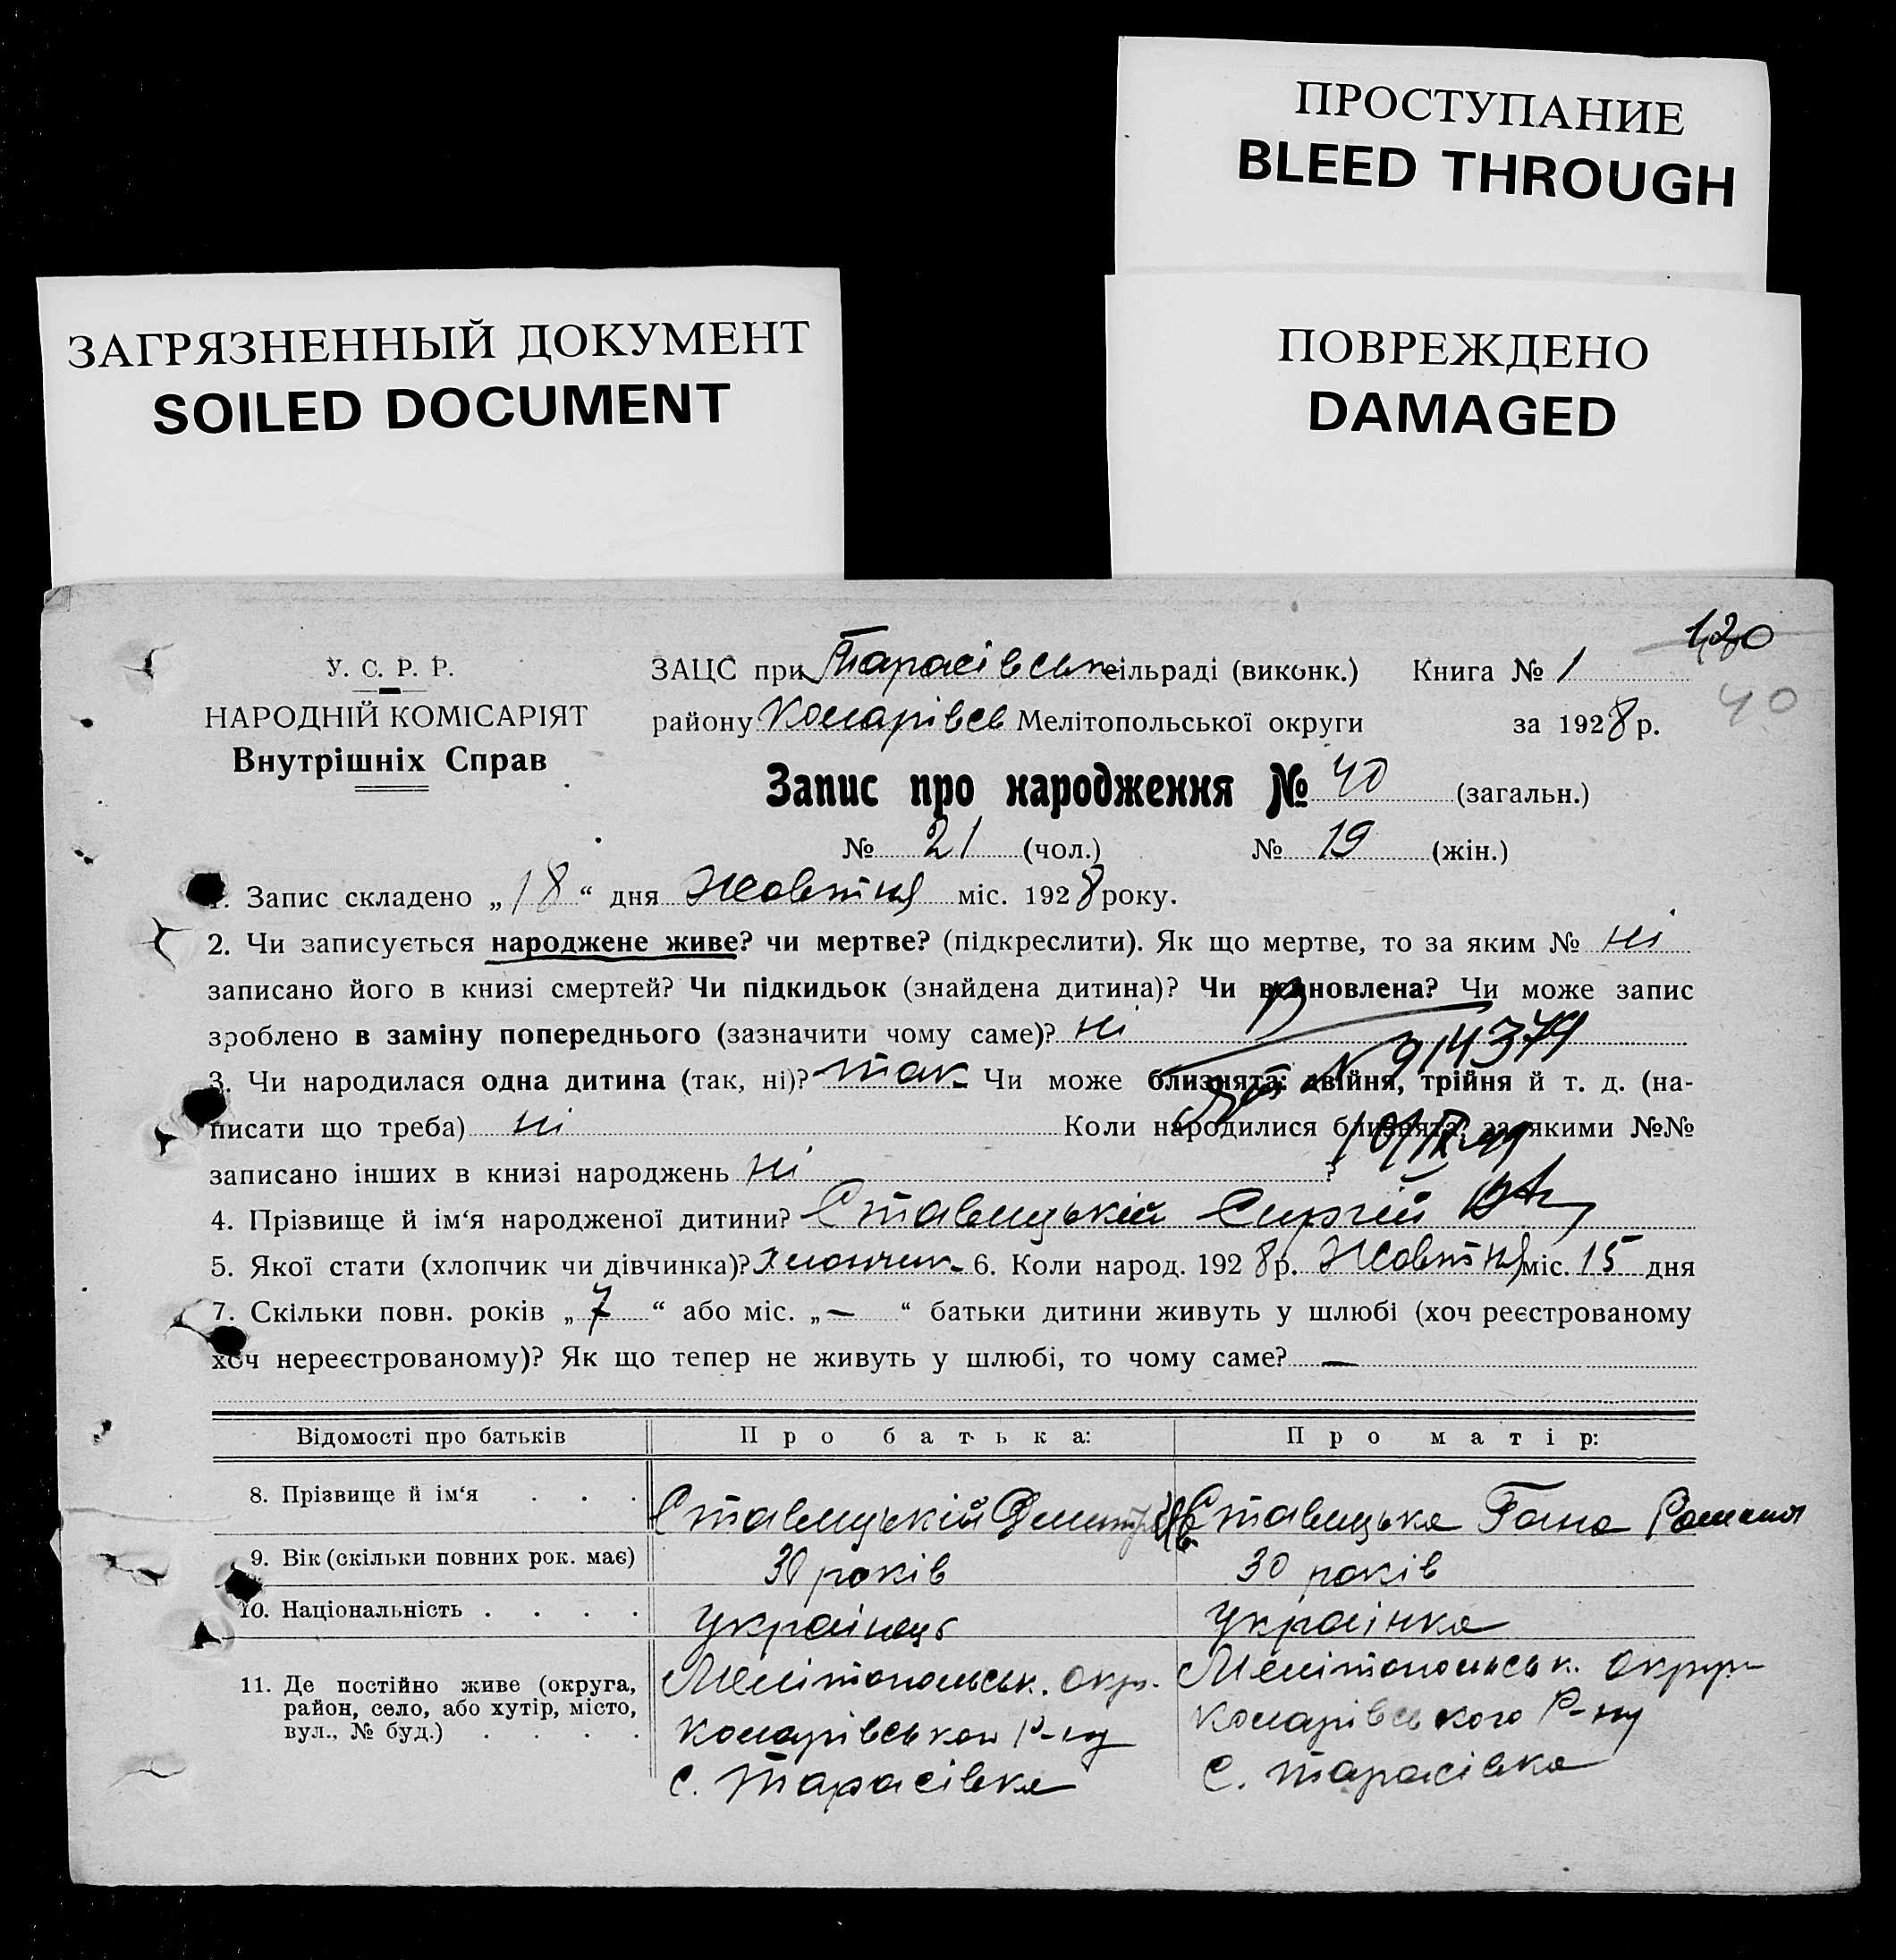 ПРОСТУПАНИЕ
BLEED THROUGH
ЗАГРЯЗНЕННЫЙ ДОКУМЕНТ
SOILED DOCUMENT
ПОВРЕЖДЕНО
DAMAGED
120
40
У. С. Р. Р.
НАРОДНІЙ КОМІСАРІЯТ
Внутрішніх Справ
ЗАЦС при Тарасівськ сільраді (виконк.) Книга № 1
району Комарівсь Мелітопольської округи за 1928 р.
Запис про народження № 40 (загальн.)
№ 21 (чол.) № 19 (жін.)
1. Запис складено „18“ дня Жовтня міс. 1928 року.
2. Чи записується народжене живе? чи мертве? (підкреслити). Як що мертве, то за яким № ні
записано його в книзі смертей? Чи підкидьок (знайдена дитина)? Чи встановлена? Чи може запис
зроблено в заміну попереднього (зазначити чому саме)? ні
3. Чи народилася одна дитина (так, ні)? так Чи може близнята: двійня, трійня й т. д. (на-
писати що треба) ні Коли народилися близнята, за якими №№
записано інших в книзі народжень ні ?
4. Прізвище й ім‘я народженої дитини? Ставицький Сергій
5. Якої стати (хлопчик чи дівчинка)? хлопчик 6. Коли народ. 1928 р. Жовтня міс. 15 дня
7. Скільки повн. років „7“ або міс. „—“ батьки дитини живуть у шлюбі (хоч реєстрованому
хоч нереєстрованому)? Як що тепер не живуть у шлюбі, то чому саме? —
Відомості про батьків Про батька: Про матір:
8. Прізвище й ім‘я . . . Ставицькій Ставицька Гана
9. Вік (скільки повних рок. має) 30 років 30 років
10. Національність . . . . Українець Українка
11. Де постійно живе (округа, район, село, або хутір, місто, вул., № буд.) . . . .
Мелітопольськ. Окр.
Комарівського Р-ну
с. Тарасівка
Мелітопольськ. Округи
Комарівського Р-ну
с. Тарасівка